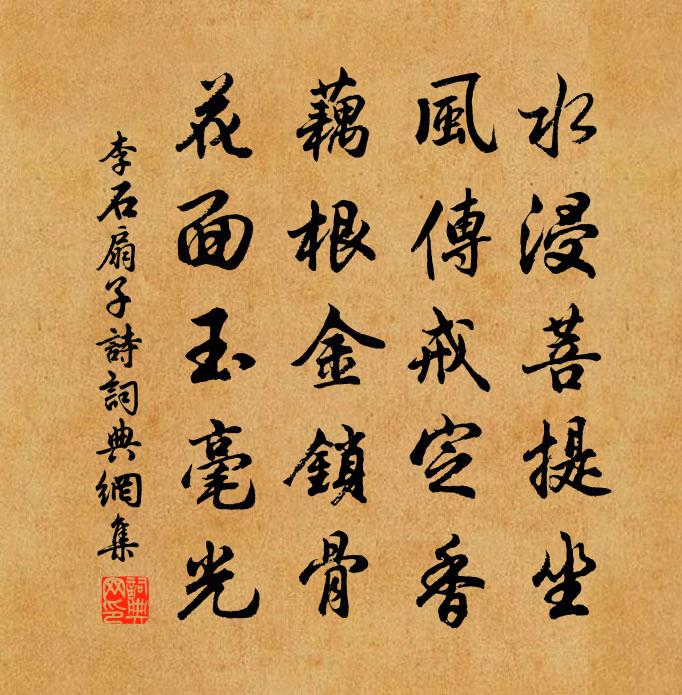 水浸菩提坐
風傳戒定香
藕根金鎖骨
花面玉毫光
李石扇子詩詞典網集
詞典網印